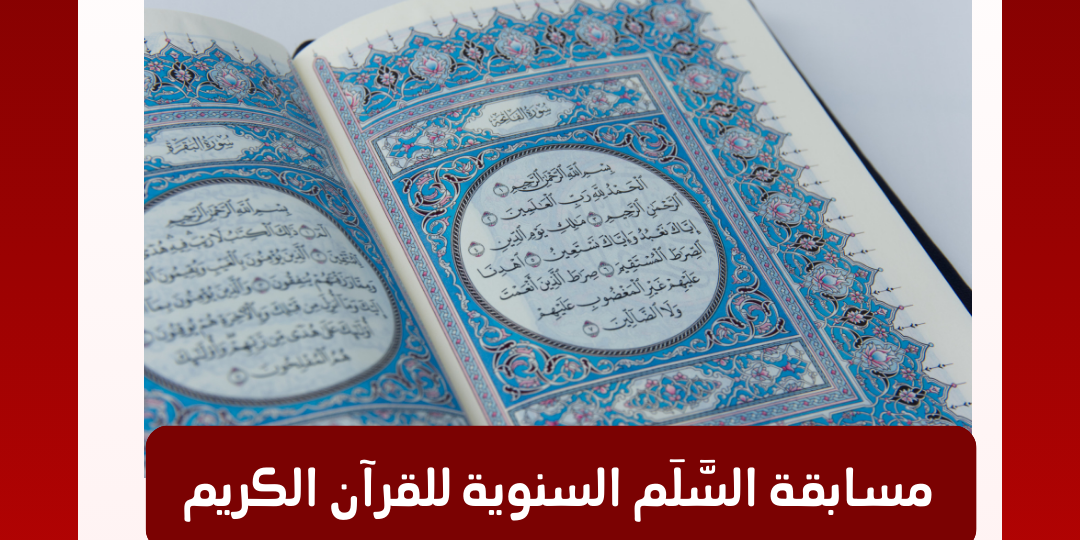 سُورَةُ الفَاتِحَةِ
بِسْمِ ٱللَّهِ ٱلرَّحْمَٰنِ ٱلرَّحِيمِ ١
ٱلْحَمْدُ لِلَّهِ رَبِّ ٱلْعَٰلَمِينَ ٢
ٱلرَّحْمَٰنِ ٱلرَّحِيمِ ٣ مَٰلِكِ يَوْمِ ٱلدِّينِ ٤
إِيَّاكَ نَعْبُدُ وَإِيَّاكَ نَسْتَعِينُ ٥ ٱهْدِنَا
ٱلصِّرَٰطَ ٱلْمُسْتَقِيمَ ٦ صِرَٰطَ ٱلَّذِينَ أَنْعَمْتَ
عَلَيْهِمْ غَيْرِ ٱلْمَغْضُوبِ عَلَيْهِمْ
وَلَا ٱلضَّآلِّينَ ٧
سُورَةُ البَقَرَةِ
بِسْمِ ٱللَّهِ ٱلرَّحْمَٰنِ ٱلرَّحِيمِ
الٓمٓ ١ ذَٰلِكَ ٱلْكِتَٰبُ لَا رَيْبَ فِيهِ هُدًى
لِّلْمُتَّقِينَ ٢ ٱلَّذِينَ يُؤْمِنُونَ بِٱلْغَيْبِ وَيُقِيمُونَ
وَمِمَّا رَزَقْنَٰهُمْ يُنفِقُونَ ٣ وَٱلَّذِينَ يُؤْمِنُونَ بِمَآ
إِلَيْكَ وَمَآ أُنزِلَ مِن قَبْلِكَ وَبِٱلْءَاخِرَةِ هُمْ يُوقِنُونَ
أُو۟لَٰٓئِكَ عَلَىٰ هُدًى مِّن رَّبِّهِمْ وَأُو۟لَٰٓئِكَ
هُمُ ٱلْمُفْلِحُونَ ٥
مسابقة السَّلَم السنوية للقرآن الكريم